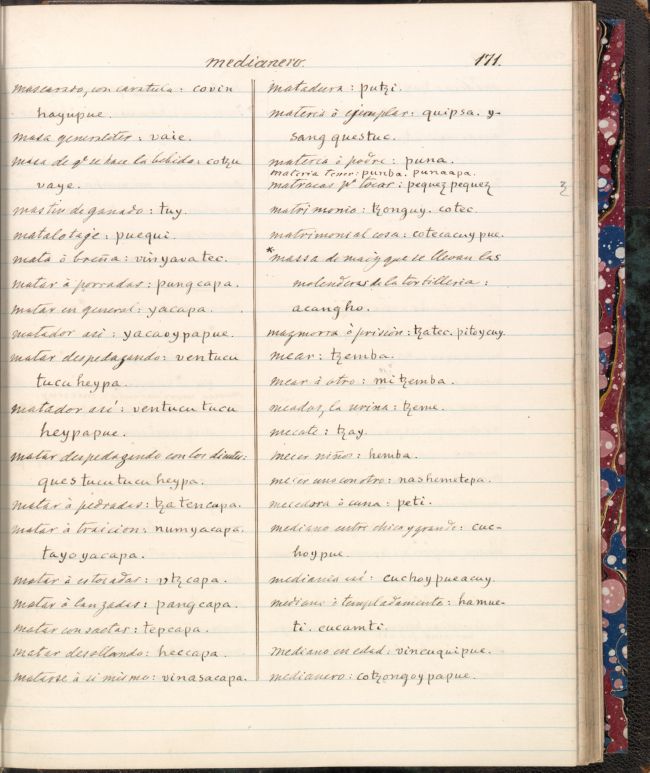 medianero. 171.
mascarado, con caratula: covin
hayupue.
masa generalitèr: vaie.
masa de q̃ se hace la bebida: cotzu
vaye.
mastin de ganado: tuy.
matalotaje: puequi.
mata ò breña: vinyava tec.
matar à porradas: pungcapa.
matar en general: yacapa.
matador asi: yacaoypapue.
matar despedazando: ventucu
tucuheypa.
matador así: ventucutucu
heypapue.
matar despedazando con los dientes:
questucutucuheypa.
matar à pedradas: tzatencapa.
matar à traicion: numyacapa.
tayoyacapa.
matar à estocadas: vtzcapa.
matar à lanzadas: pangcapa.
matar con saetas: tepcapa.
matar desollando: heecapa.
matarse à si mismo: vinasacapa.
matadura: putzi.
materia ò ejemplar: quipsa. y-
sang questuc.
materia ò podre: puna.
materia tener: punba. punaapa.
matracas pª tocar: pequez pequez
z
matrimonio: tzonguy. cotec.
matrimonsal cosa: cotecacuy pue.
*massa de maiz que se llevan las
molenderas de la tortilleria:
acangho.
mazmorra ò prision: tzatec. pitoycuy.
mear: tzemba.
mear à otro: mitzemba.
meados, la urina: tzeme.
mecate: tzay.
mecer niños: hemba.
mecer uno con otro: nashemetepa.
mecedora ò cuna: peti.
mediano entre chico y grande: cuc-
hoypue.
mediania asi: cuchoypueacuy.
mediano ò templadamente: hamue-
ti. cucamti.
mediano en edad: vincuquipue.
medianero: cotzongoypapue.